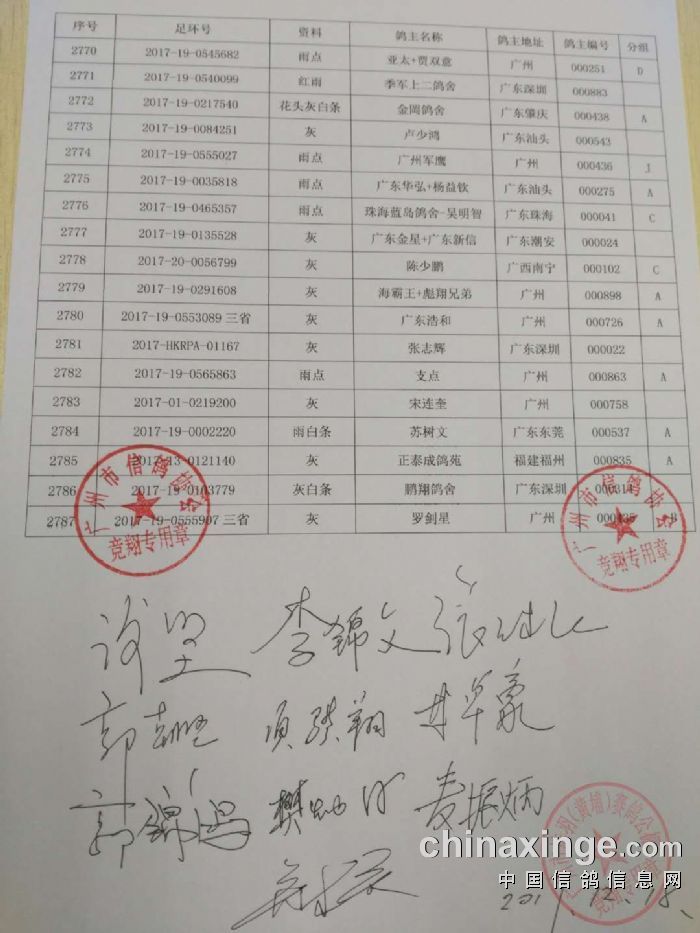 序号 足环号 资料 鸽主名称 鸽主地址 鸽主编号 分组
2770 2017-19-0545682 雨点 亚太+贾双意 广州 000251 D
2771 2017-19-0540099 红雨 季军上二鸽舍 广东深圳 000883
2772 2017-19-0217540 花头灰白条 金岡鸽舍 广东肇庆 000438 A
2773 2017-19-0084251 灰 卢少鸿 广东汕头 000543
2774 2017-19-0555027 雨点 广州军鹰 广州 000436 J
2775 2017-19-0035818 雨点 广东华弘+杨益钦 广东汕头 000275 A
2776 2017-19-0465357 雨点 珠海蓝岛鸽舍-吴明智 广东珠海 000041 C
2777 2017-19-0135528 灰 广东金星+广东新信 广东潮安 000024
2778 2017-20-0056799 灰 陈少鹏 广西南宁 000102 C
2779 2017-19-0291608 灰 海霸王+彪翔兄弟 广州 000898 A
2780 2017-19-0553089 三省 灰 广东浩和 广州 000726 A
2781 2017-HKRPA-01167 灰 张志辉 广东深圳 000022
2782 2017-19-0565863 雨点 支点 广州 000863 A
2783 2017-01-0219200 灰 宋连奎 广州 000758
2784 2017-19-0002220 雨白条 苏树文 广东东莞 000537 A
2785 2017-13-0121140 灰 正泰成鸽苑 福建福州 000835 A
2786 2017-19-0103779 灰白条 鹏翔鸽舍 广东深圳 000314
2787 2017-19-0555907 三省 灰 罗剑星 广州 B
广州市信鸽协会
竞翔专用章
广州市信鸽协会
竞翔专用章
李锦文
郭锦鸿
麦振炳
chinaxinge.com
中国信鸽信息网